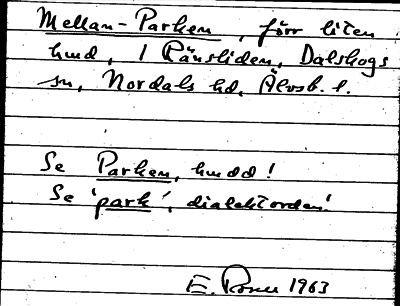 Mellan-Parken, förr liten
hmd, i Ränsliden, Dalskogs
sn, Nordals hd, Älvsb. l.
Se Parken, hmdd!
Se 'park', dialektorden!
E. 1963